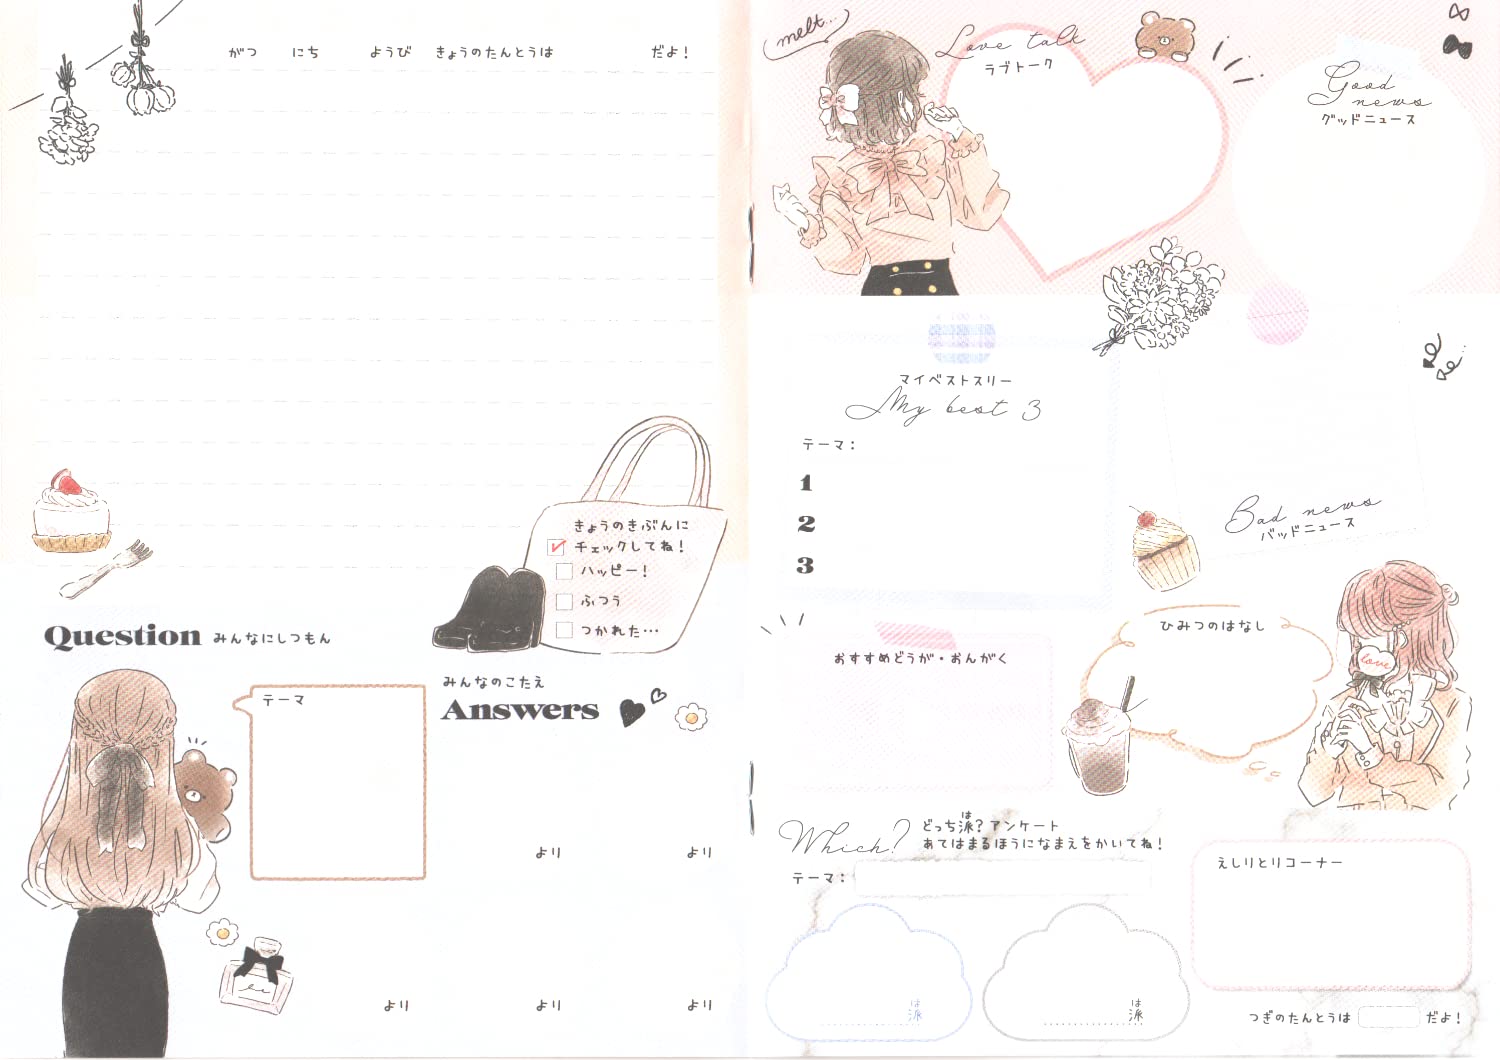 がつ にち ようび きょうのたんとうは だよ！
きょうのきぶんに
チェックしてね！
ハッピー！
ふつう
つかれた…
Question みんなにしつもん
テーマ
みんなのこたえ
Answers
より より
より より より
melt...
Love talk
ラブトーク
Good
news
グッドニュース
マイベストスリー
My best 3
テーマ：
1
2
3
Bad news
バッドニュース
おすすめどうが・おんがく
ひみつのはなし
love
Which?
は
どっち派？アンケート
あてはまるほうになまえをかいてね！
テーマ：
は
派
は
派
えしりとりコーナー
つぎのたんとうは だよ！